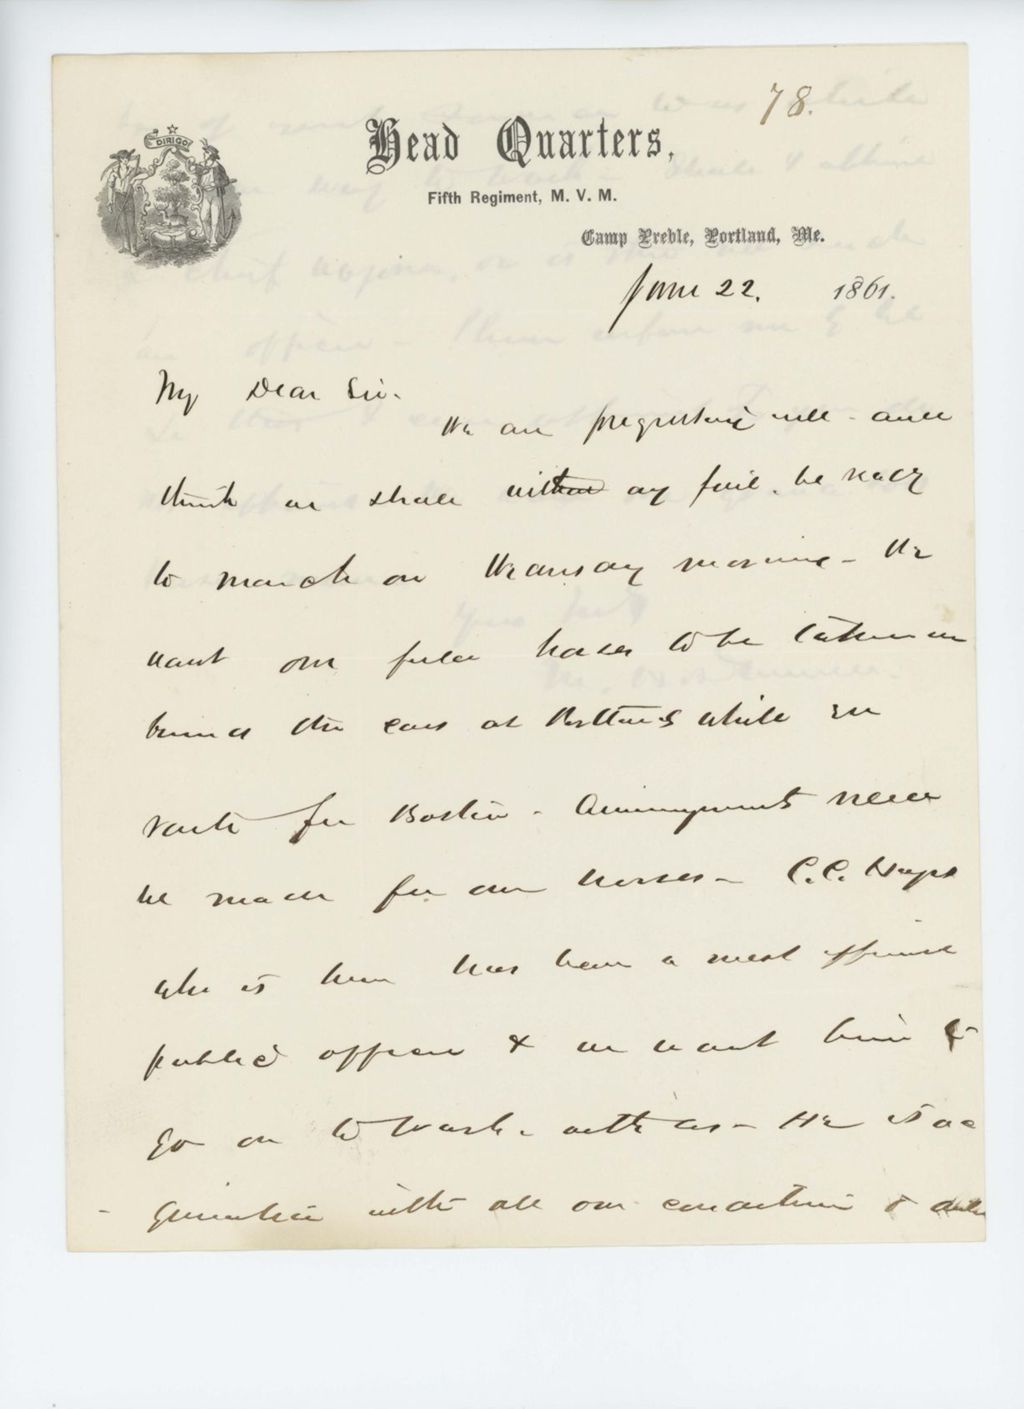 78.
DIRIGO
Head Quarters,
Fifth Regiment, M. V. M.
Camp Preble, Portland, Me.
June 22. 1861.
My Dear Sir.
We are progressing well - and
think we shall without any fail. be ready
to march on Wednesday morning - We
want our field horses to be taken on
board the cars at Portland while en
route for Boston - Arrangements need
be made for our horses - C. C. Hayes
who is here has been a most efficient
public officer & we want him to
go on to Wash. with us - He is ac
- quainted with all our condition &